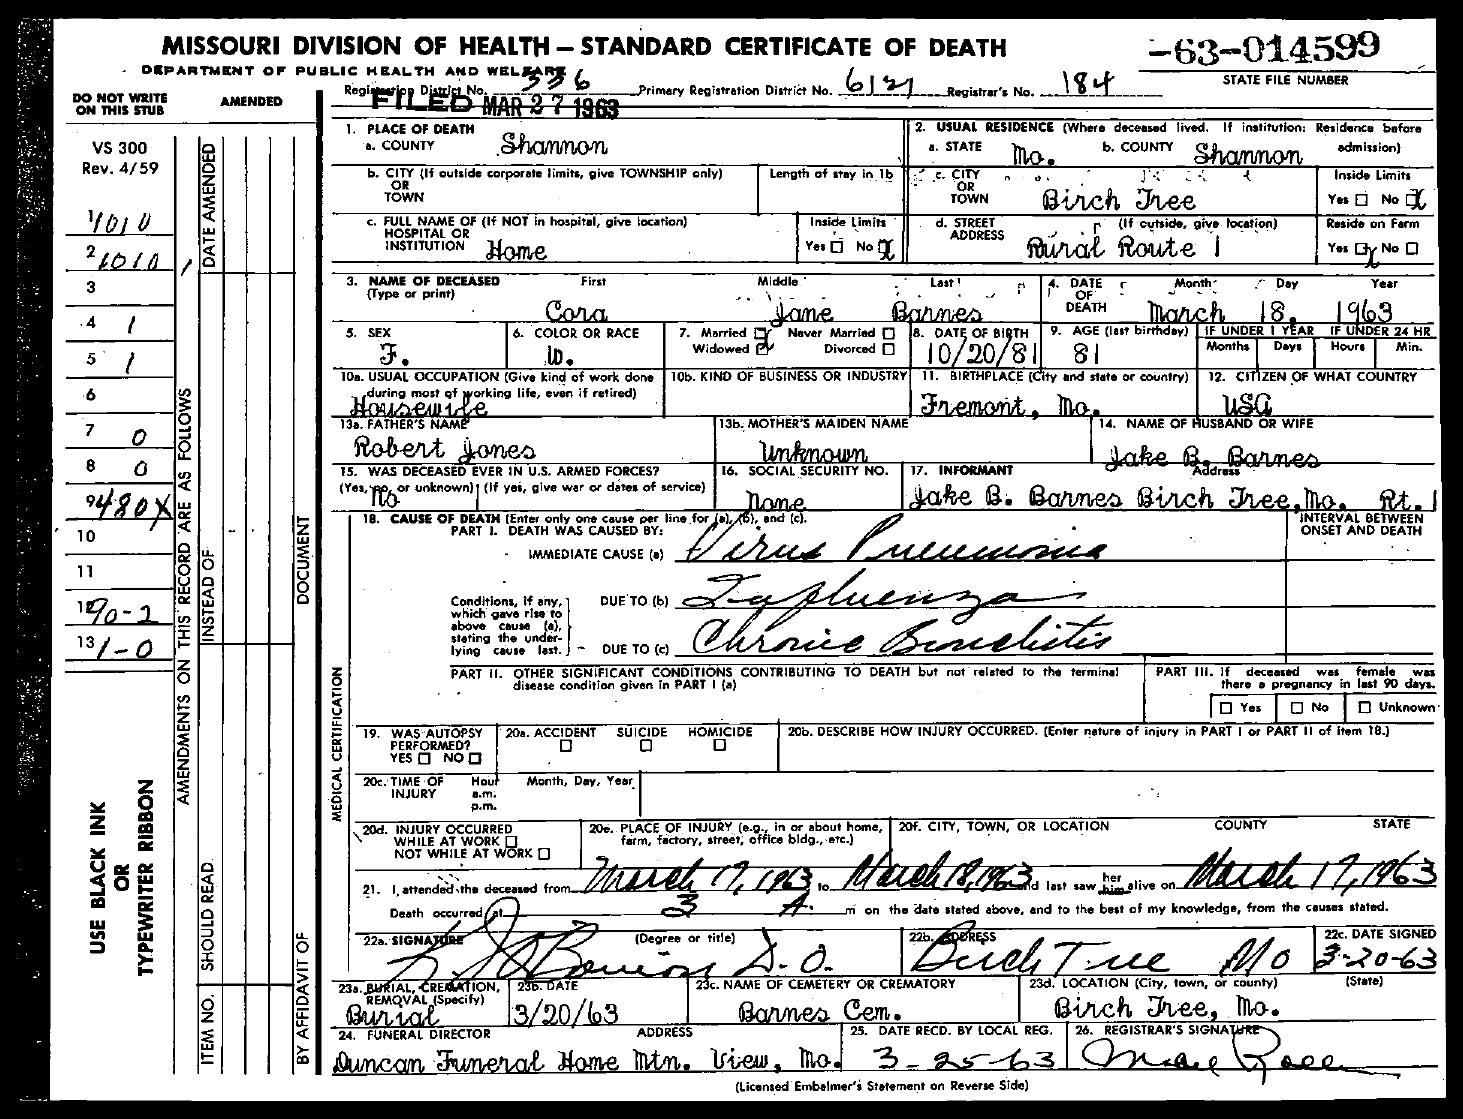 MISSOURI DIVISION OF HEALTH — STANDARD CERTIFICATE OF DEATH
-63-014599
DEPARTMENT OF PUBLIC HEALTH AND WELFARE
STATE FILE NUMBER
Registration District No. 336 Primary Registration District No. 6121 Registrar's No. 184
FILED MAR 27 1963
DO NOT WRITE ON THIS STUB
AMENDED
VS 300
Rev. 4/59
1 1010
2 1010 1
3
4 1
5 1
6
7 0
8 0
9 480X
10
11
12 90-2
13 1-0
USE BLACK INK
OR
TYPEWRITER RIBBON
AMENDMENTS ON THIS RECORD ARE AS FOLLOWS
DATE AMENDED
INSTEAD OF
SHOULD READ
ITEM NO.
DOCUMENT
BY AFFIDAVIT OF
MEDICAL CERTIFICATION
1. PLACE OF DEATH
a. COUNTY Shannon
2. USUAL RESIDENCE (Where deceased lived. If institution: Residence before admission)
a. STATE Mo. b. COUNTY Shannon
b. CITY (If outside corporate limits, give TOWNSHIP only) OR TOWN
Length of stay in 1b
c. CITY OR TOWN Birch Tree
Inside Limits
Yes No X
c. FULL NAME OF (If NOT in hospital, give location) HOSPITAL OR INSTITUTION Home
Inside Limits
Yes No X
d. STREET ADDRESS (If outside, give location) Rural Route 1
Reside on Farm
Yes X No
3. NAME OF DECEASED (Type or print)
First Middle Last
Cora Jane Barnes
4. DATE OF DEATH Month Day Year
March 18, 1963
5. SEX
F.
6. COLOR OR RACE
W.
7. Married Never Married
Widowed Divorced
8. DATE OF BIRTH
10/20/81
9. AGE (last birthday)
81
IF UNDER 1 YEAR
Months Days
IF UNDER 24 HR
Hours Min.
10a. USUAL OCCUPATION (Give kind of work done during most of working life, even if retired)
Housewife
10b. KIND OF BUSINESS OR INDUSTRY
11. BIRTHPLACE (City and state or country)
Fremont, Mo.
12. CITIZEN OF WHAT COUNTRY
USA
13a. FATHER'S NAME
Robert Jones
13b. MOTHER'S MAIDEN NAME
Unknown
14. NAME OF HUSBAND OR WIFE
Jake B. Barnes
15. WAS DECEASED EVER IN U.S. ARMED FORCES?
(Yes, no, or unknown) (If yes, give war or dates of service)
No
16. SOCIAL SECURITY NO.
None
17. INFORMANT Address
Jake B. Barnes Birch Tree, Mo. Rt. 1
18. CAUSE OF DEATH (Enter only one cause per line for (a), (b), and (c).
PART I. DEATH WAS CAUSED BY:
INTERVAL BETWEEN ONSET AND DEATH
IMMEDIATE CAUSE (a) Virus Pneumonia
Conditions, if any, which gave rise to above cause (a), stating the underlying cause last.
DUE TO (b) Influenza
DUE TO (c) Chronic Bronchitis
PART II. OTHER SIGNIFICANT CONDITIONS CONTRIBUTING TO DEATH but not related to the terminal disease condition given in PART I (a)
PART III. If deceased was female was there a pregnancy in last 90 days.
Yes No Unknown
19. WAS AUTOPSY PERFORMED?
YES NO
20a. ACCIDENT SUICIDE HOMICIDE
20b. DESCRIBE HOW INJURY OCCURRED. (Enter nature of injury in PART I or PART II of item 18.)
20c. TIME OF INJURY Hour a.m. p.m. Month, Day, Year
20d. INJURY OCCURRED
WHILE AT WORK
NOT WHILE AT WORK
20e. PLACE OF INJURY (e.g., in or about home, farm, factory, street, office bldg., etc.)
20f. CITY, TOWN, OR LOCATION COUNTY STATE
21. I attended the deceased from March 17, 1963 to March 18, 1963 and last saw her him alive on March 17, 1963
Death occurred at 3 A. m on the date stated above, and to the best of my knowledge, from the causes stated.
22a. SIGNATURE (Degree or title)
D. O.
22b. ADDRESS
Birch Tree Mo
22c. DATE SIGNED
3-20-63
23a. BURIAL, CREMATION, REMOVAL (Specify)
Burial
23b. DATE
3/20/63
23c. NAME OF CEMETERY OR CREMATORY
Barnes Cem.
23d. LOCATION (City, town, or county) (State)
Birch Tree, Mo.
24. FUNERAL DIRECTOR ADDRESS
Duncan Funeral Home Mtn. View, Mo.
25. DATE RECD. BY LOCAL REG.
3-25-63
26. REGISTRAR'S SIGNATURE
(Licensed Embalmer's Statement on Reverse Side)